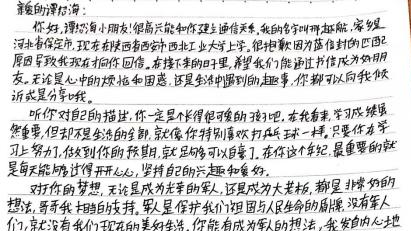 亲爱的谭皓海:
你好,谭皓海小朋友!很高兴能和你建立通信关系,我的名字叫那越航,家乡是
河北省保定市,现在在陕西省西安市西北工业大学上学。很抱歉因为蓝信封的匹配
原因导致我现在才向你回信。在接下来的日子里,希望我们能通过书信成为好朋
友,无论是心中的烦恼和困惑,还是生活中遇到的趣事,你都可以向我倾
诉或是分享哦。
听你对自己的描述,你一定是个长得很可爱的孩子吧。在我看来,学习成绩虽
然重要,但却不是生活的全部,就像你特别喜欢打乒乓球一样。只要你在学
习上努力了,做到你的预期,就足够可以自豪了。在你这个年纪,最重要的就
是每天能够过得开开心心,坚持自己的兴趣和爱好。
对于你的梦想,无论是成为光荣的军人,还是成为大老板,都是非常好的
想法,哥哥我相当的支持。军人是保护我们祖国与人民生命的盾牌,没有军人
们,就没有我们现在的美好生活。你能有成为军人的想法,我发自内心地